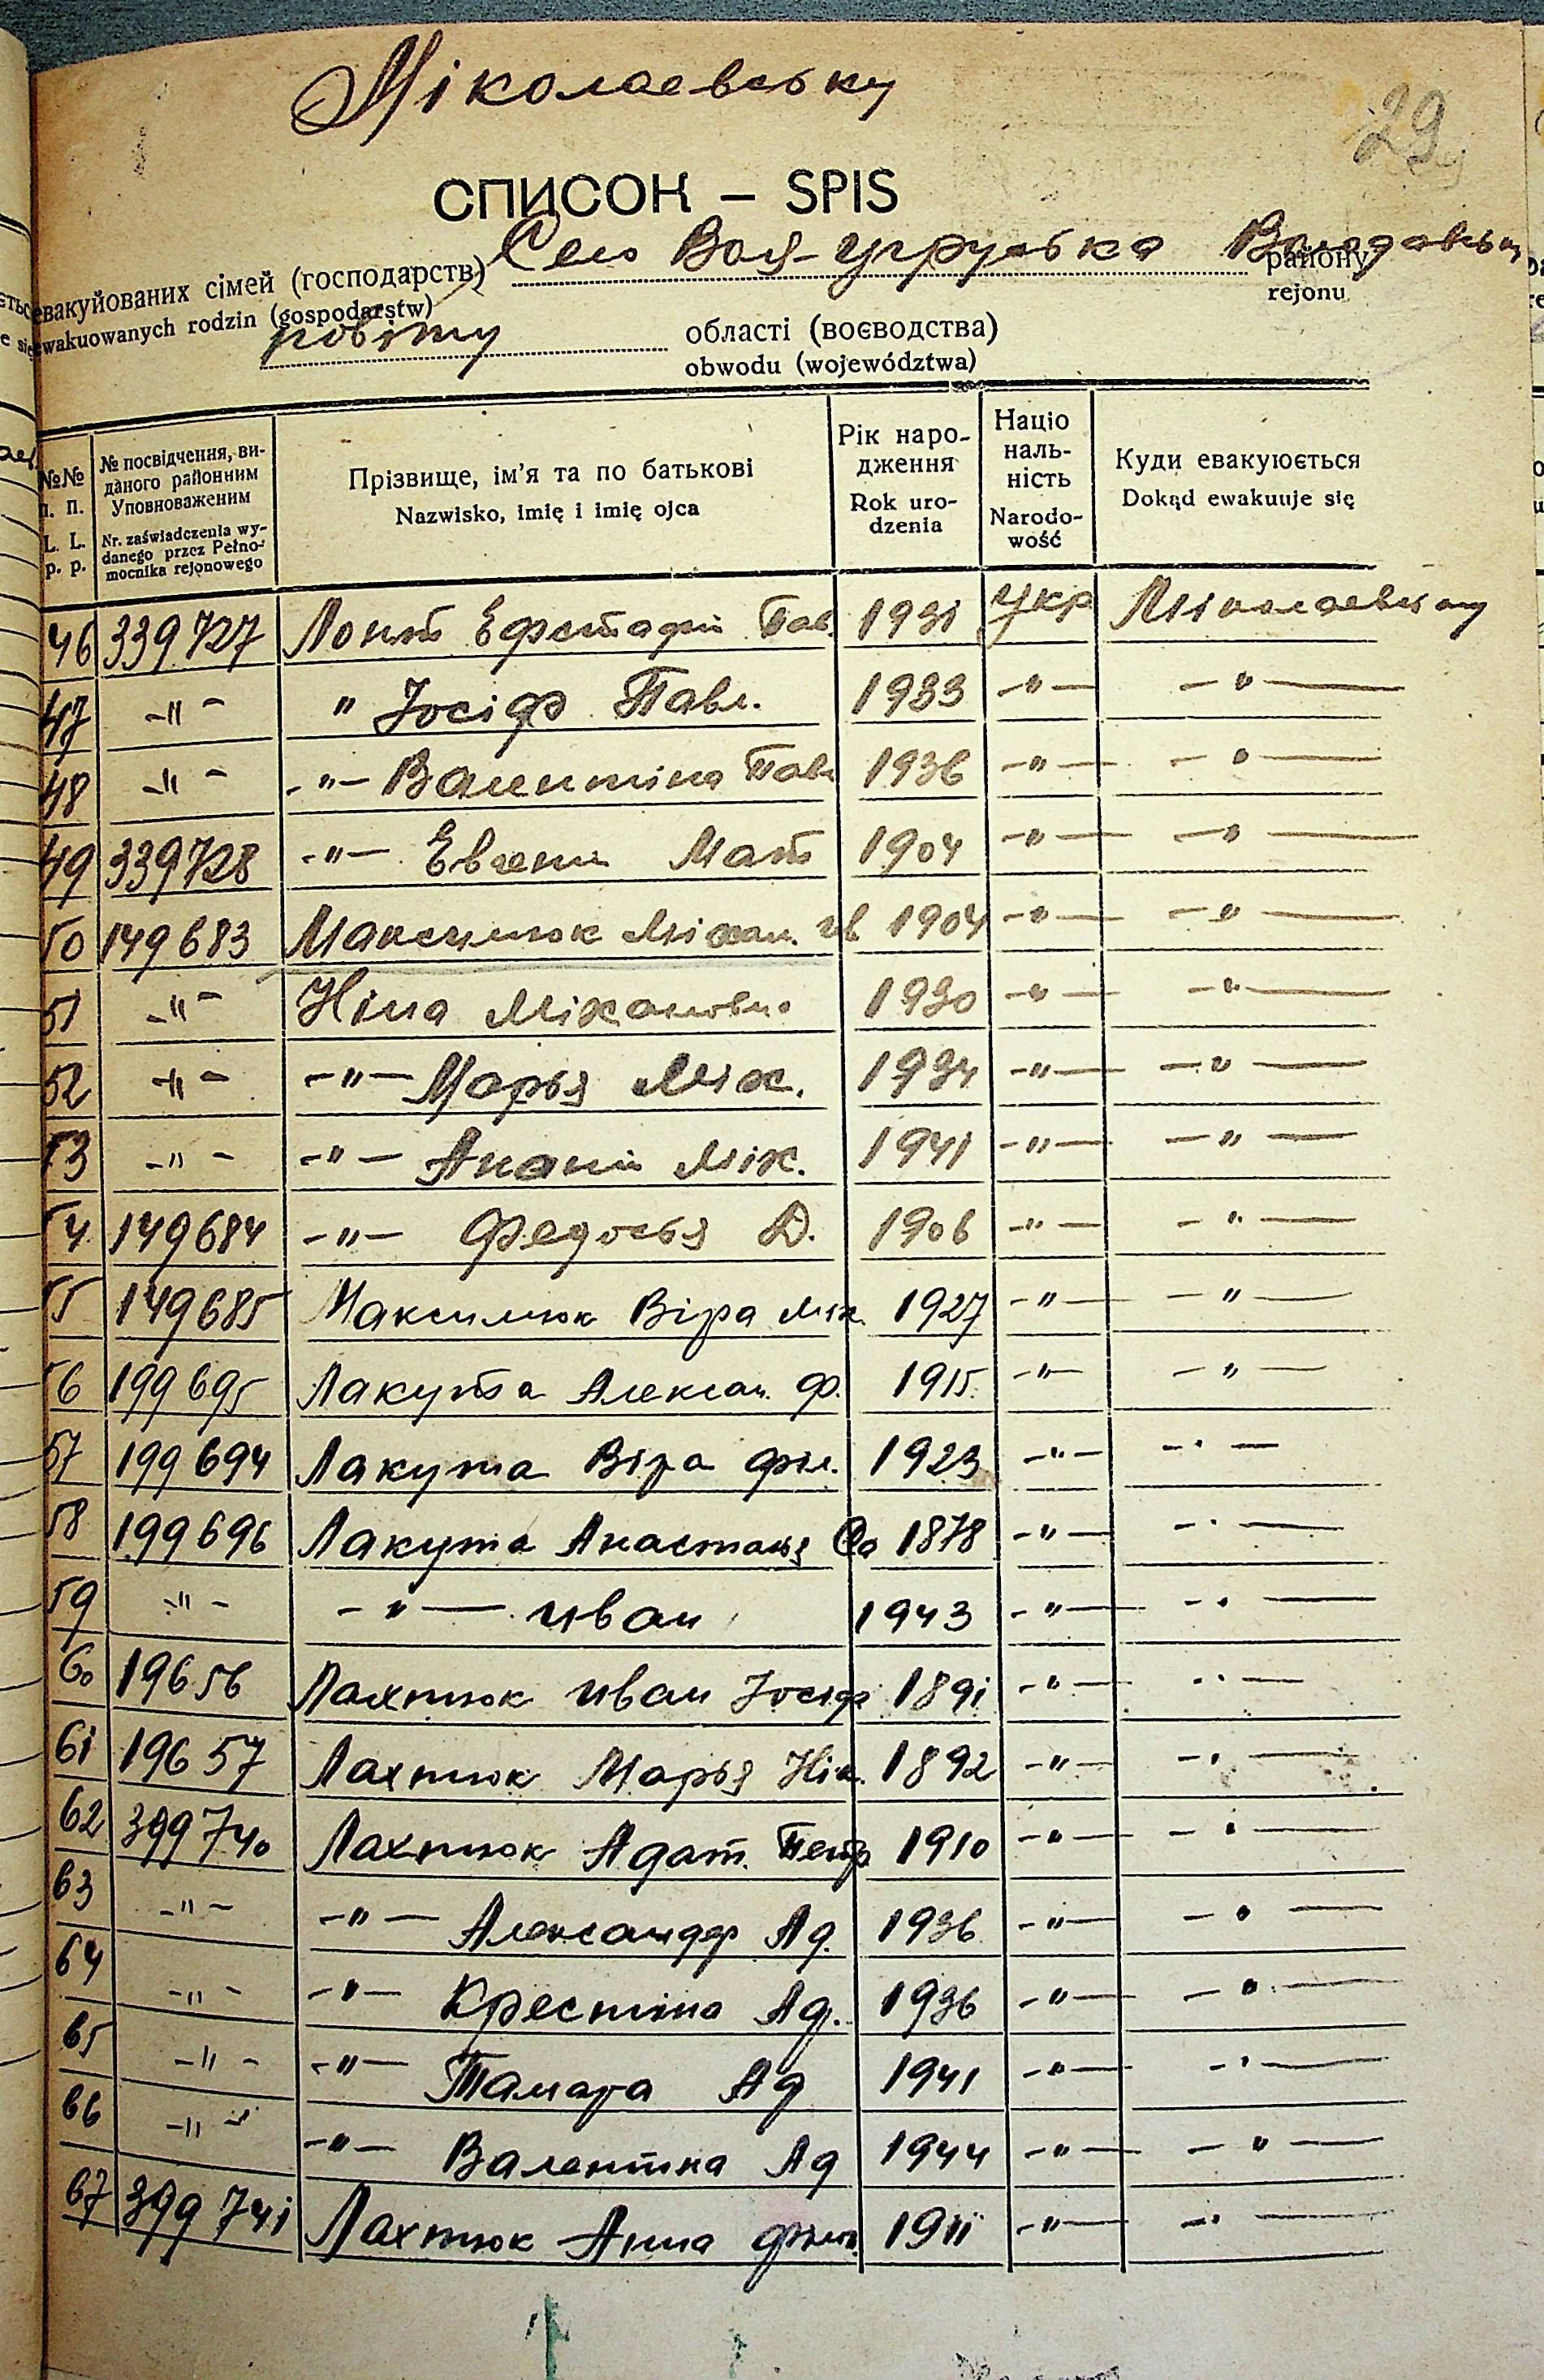 Міколаевську
29
СПИСОК – SPIS
евакуйованих сімей (господарств) Село Воля-Угруська Володавськ району
ewakuowanych rodzin (gospodarstw) rejonu
повіту області (воєводства)
obwodu (województwa)
№№ п. п. L. L. p. p. | № посвідчення, виданого районним Уповноваженим Nr. zaświadczenia wydanego przez Pełnomocnika rejonowego | Прізвище, ім'я та по батькові Nazwisko, imię i imię ojca | Рік народження Rok urodzenia | Націо наль-ність Narodowość | Куди евакуюється Dokąd ewakuuje się
46 339727 Лонт Ефстафи Пав. 1931 Укр Міколаевську
47 -"- " Јосіф Павл. 1933 -"- -"-
48 -"- -"- Валентіна Павл 1936 -"- -"-
49 339728 -"- Евгени Мат 1904 -"- -"-
50 149683 Максимюк Міхаил. Ів 1904 -"- -"-
51 -"- Ніна Міхаиловна 1930 -"- -"-
52 -"- -"- Марья Міх. 1934 -"- -"-
53 -"- -"- Анани Міх. 1941 -"- -"-
54 149684 -"- Федосья Д. 1906 -"- -"-
55 149685 Максимюк Віра Міх. 1927 -"- -"-
56 199695 Лакута Александ. Ф. 1915. -"- -"-
57 199694 Лакута Віра Філ. 1923 -"- -"-
58 199696 Лакута Анастасья 1878 -"- -"-
59 -"- -"- Иван 1943 -"- -"-
60 19656 Лахтюк Иван Јосиф 1891 -"- -"-
61 19657 Лахтюк Марья Нік. 1892 -"- -"-
62 399740 Лахтюк Адам. Петр 1910 -"- -"-
63 -"- -"- Александр Ад. 1936 -"- -"-
64 -"- -"- Крестіна Ад. 1936 -"- -"-
65 -"- -"- Тамара Ад 1941 -"- -"-
66 -"- -"- Валентина Ад 1944 -"- -"-
67 399741 Лахтюк Анна Філ. 1911 -"- -"-